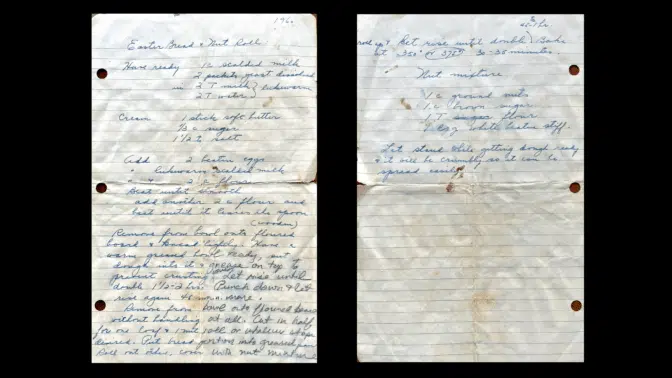 196
Easter Bread & Nut Roll
Have ready 1 c scalded milk
2 packets yeast dissolved
in 2 T milk } lukewarm
2 T water
Cream 1 stick soft butter
1/3 c sugar
1 1/2 t salt
Add 2 beaten eggs
" lukewarm scalded milk
2 flour
Beat until smooth
add another 2 c flour and
beat until it leaves the spoon
(wooden)
Remove from bowl onto floured
board & knead lightly. Have a
warm greased bowl ready, put
dough into it & grease on top to
prevent crusting. Let rise until
double 1 1/2-2 hrs. Punch down & let
rise again 45 min more.
Remove from bowl onto floured board
without handling at all. Cut in half
for one loaf & 1 nut roll or whatever
desired. Put bread portion into greased pan
Roll out other, cover with nut mixture
hr.
roll up & Let rise until double) Bake
at 350° or 375° 30-35 minutes.
Nut mixture
1 c ground nuts
1 c brown sugar
1 T flour
1 egg white beaten stiff.
Let stand while getting dough ready
& it will be crumbly so it can be
spread easily